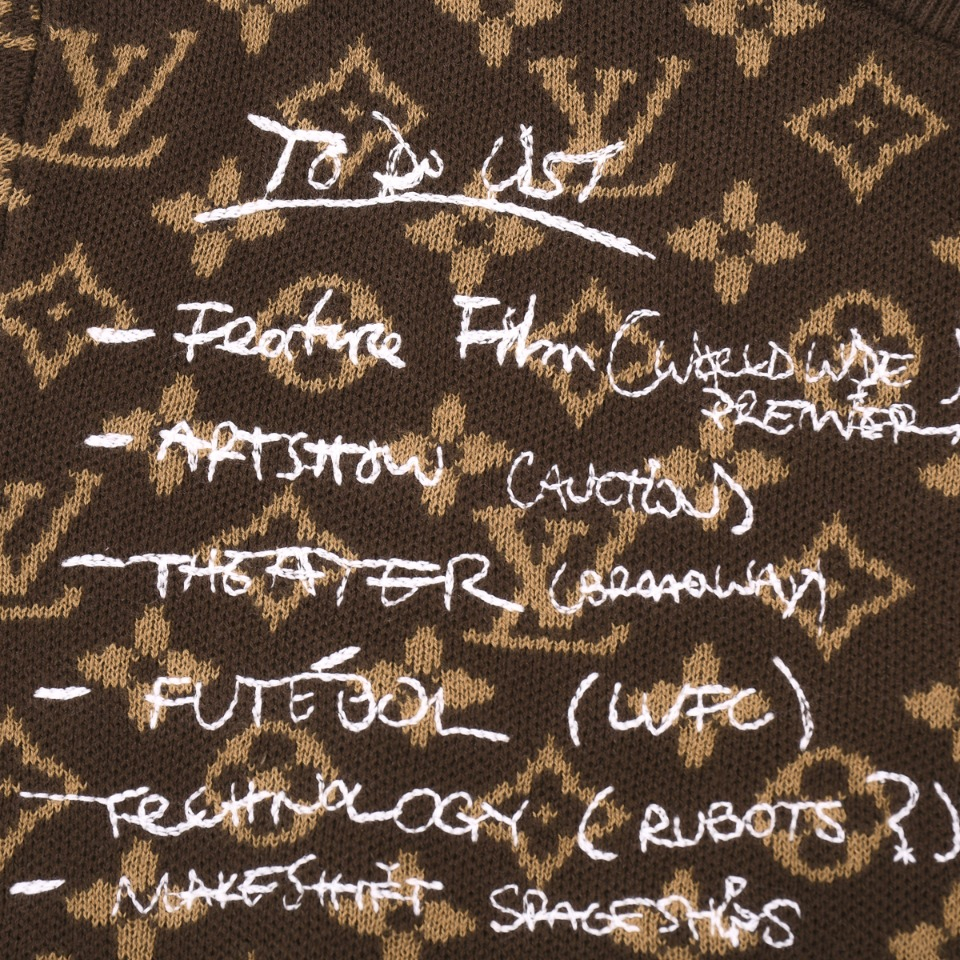 TO DO LIST
- Feature Film (WORLD WIDE)
PREMIER
- ARTSHOW (AUCTION)
- THEATER (BROADWAY)
- FUTÉBOL (LVFC)
- TECHNOLOGY (ROBOTS?)
- MAKESHIFT SPACESHIPS